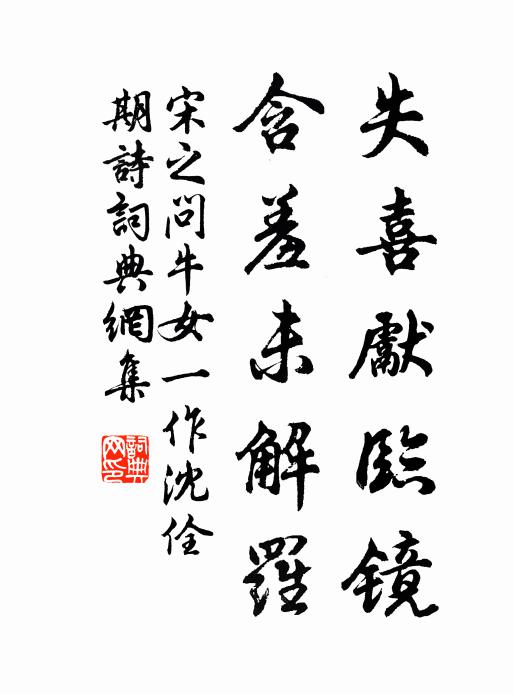 失喜獻臨镜
含羞未解羅
宋之问牛女一作沈佺
期詩詞典網集
詞典
网印